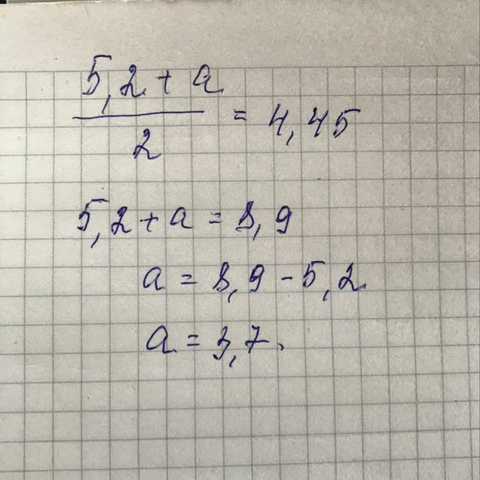 5,2 + a
/ 2 = 4,45
5,2 + a = 8,9
a = 8,9 - 5,2
a = 3,7.